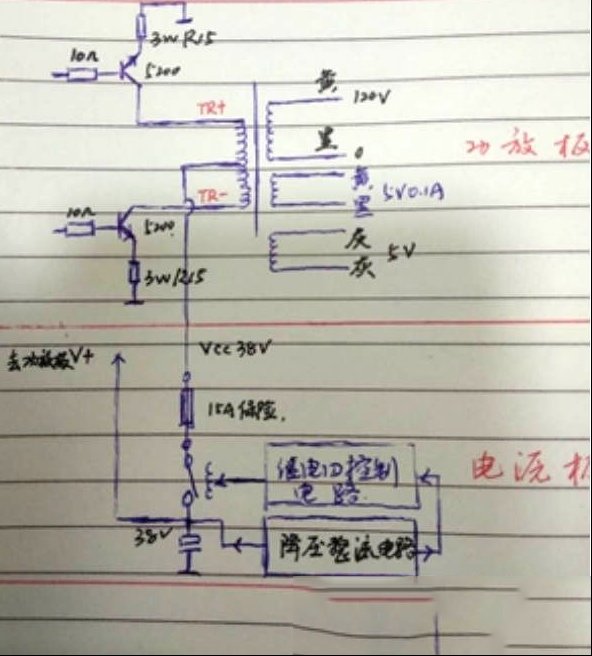 3W R15
10Ω
5200
TR+
黄
120V
黑
0
功放板
TR-
黄
5V0.1A
黑
10Ω
5200
灰
5V
灰
3W R15
Vcc 38V
去功放板V+
15A保险.
继电口控制
电路.
电流板
38V
降压整流电路